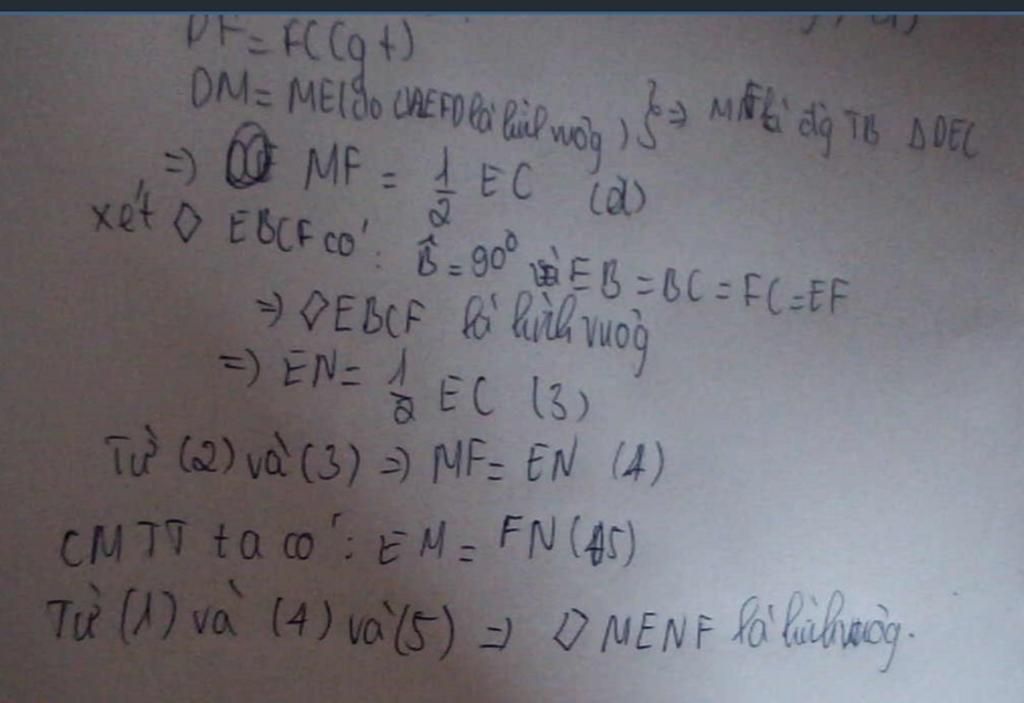 DF = FC (gt)
DM = ME (do ◇AEFD là hình vuôg) } => MF là đg TB Δ DEC
=> MF = 1/2 EC (2)
xét ◇ EBCF có: B̂ = 90° và EB = BC = FC = EF
=> ◇EBCF là hình vuôg
=> EN = 1/2 EC (3)
Từ (2) và (3) => MF = EN (4)
CMTT ta có: EM = FN (5)
Từ (1) và (4) và (5) => ◇ MENF là hình vuôg.